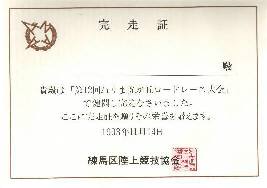 完走証
殿
貴殿は「第12回ねりま光が丘ロードレース大会」
で健闘し完走なさいました。
ここに完走証を贈りその栄誉を讃えます。
1993年11月14日
練馬区陸上競技協会